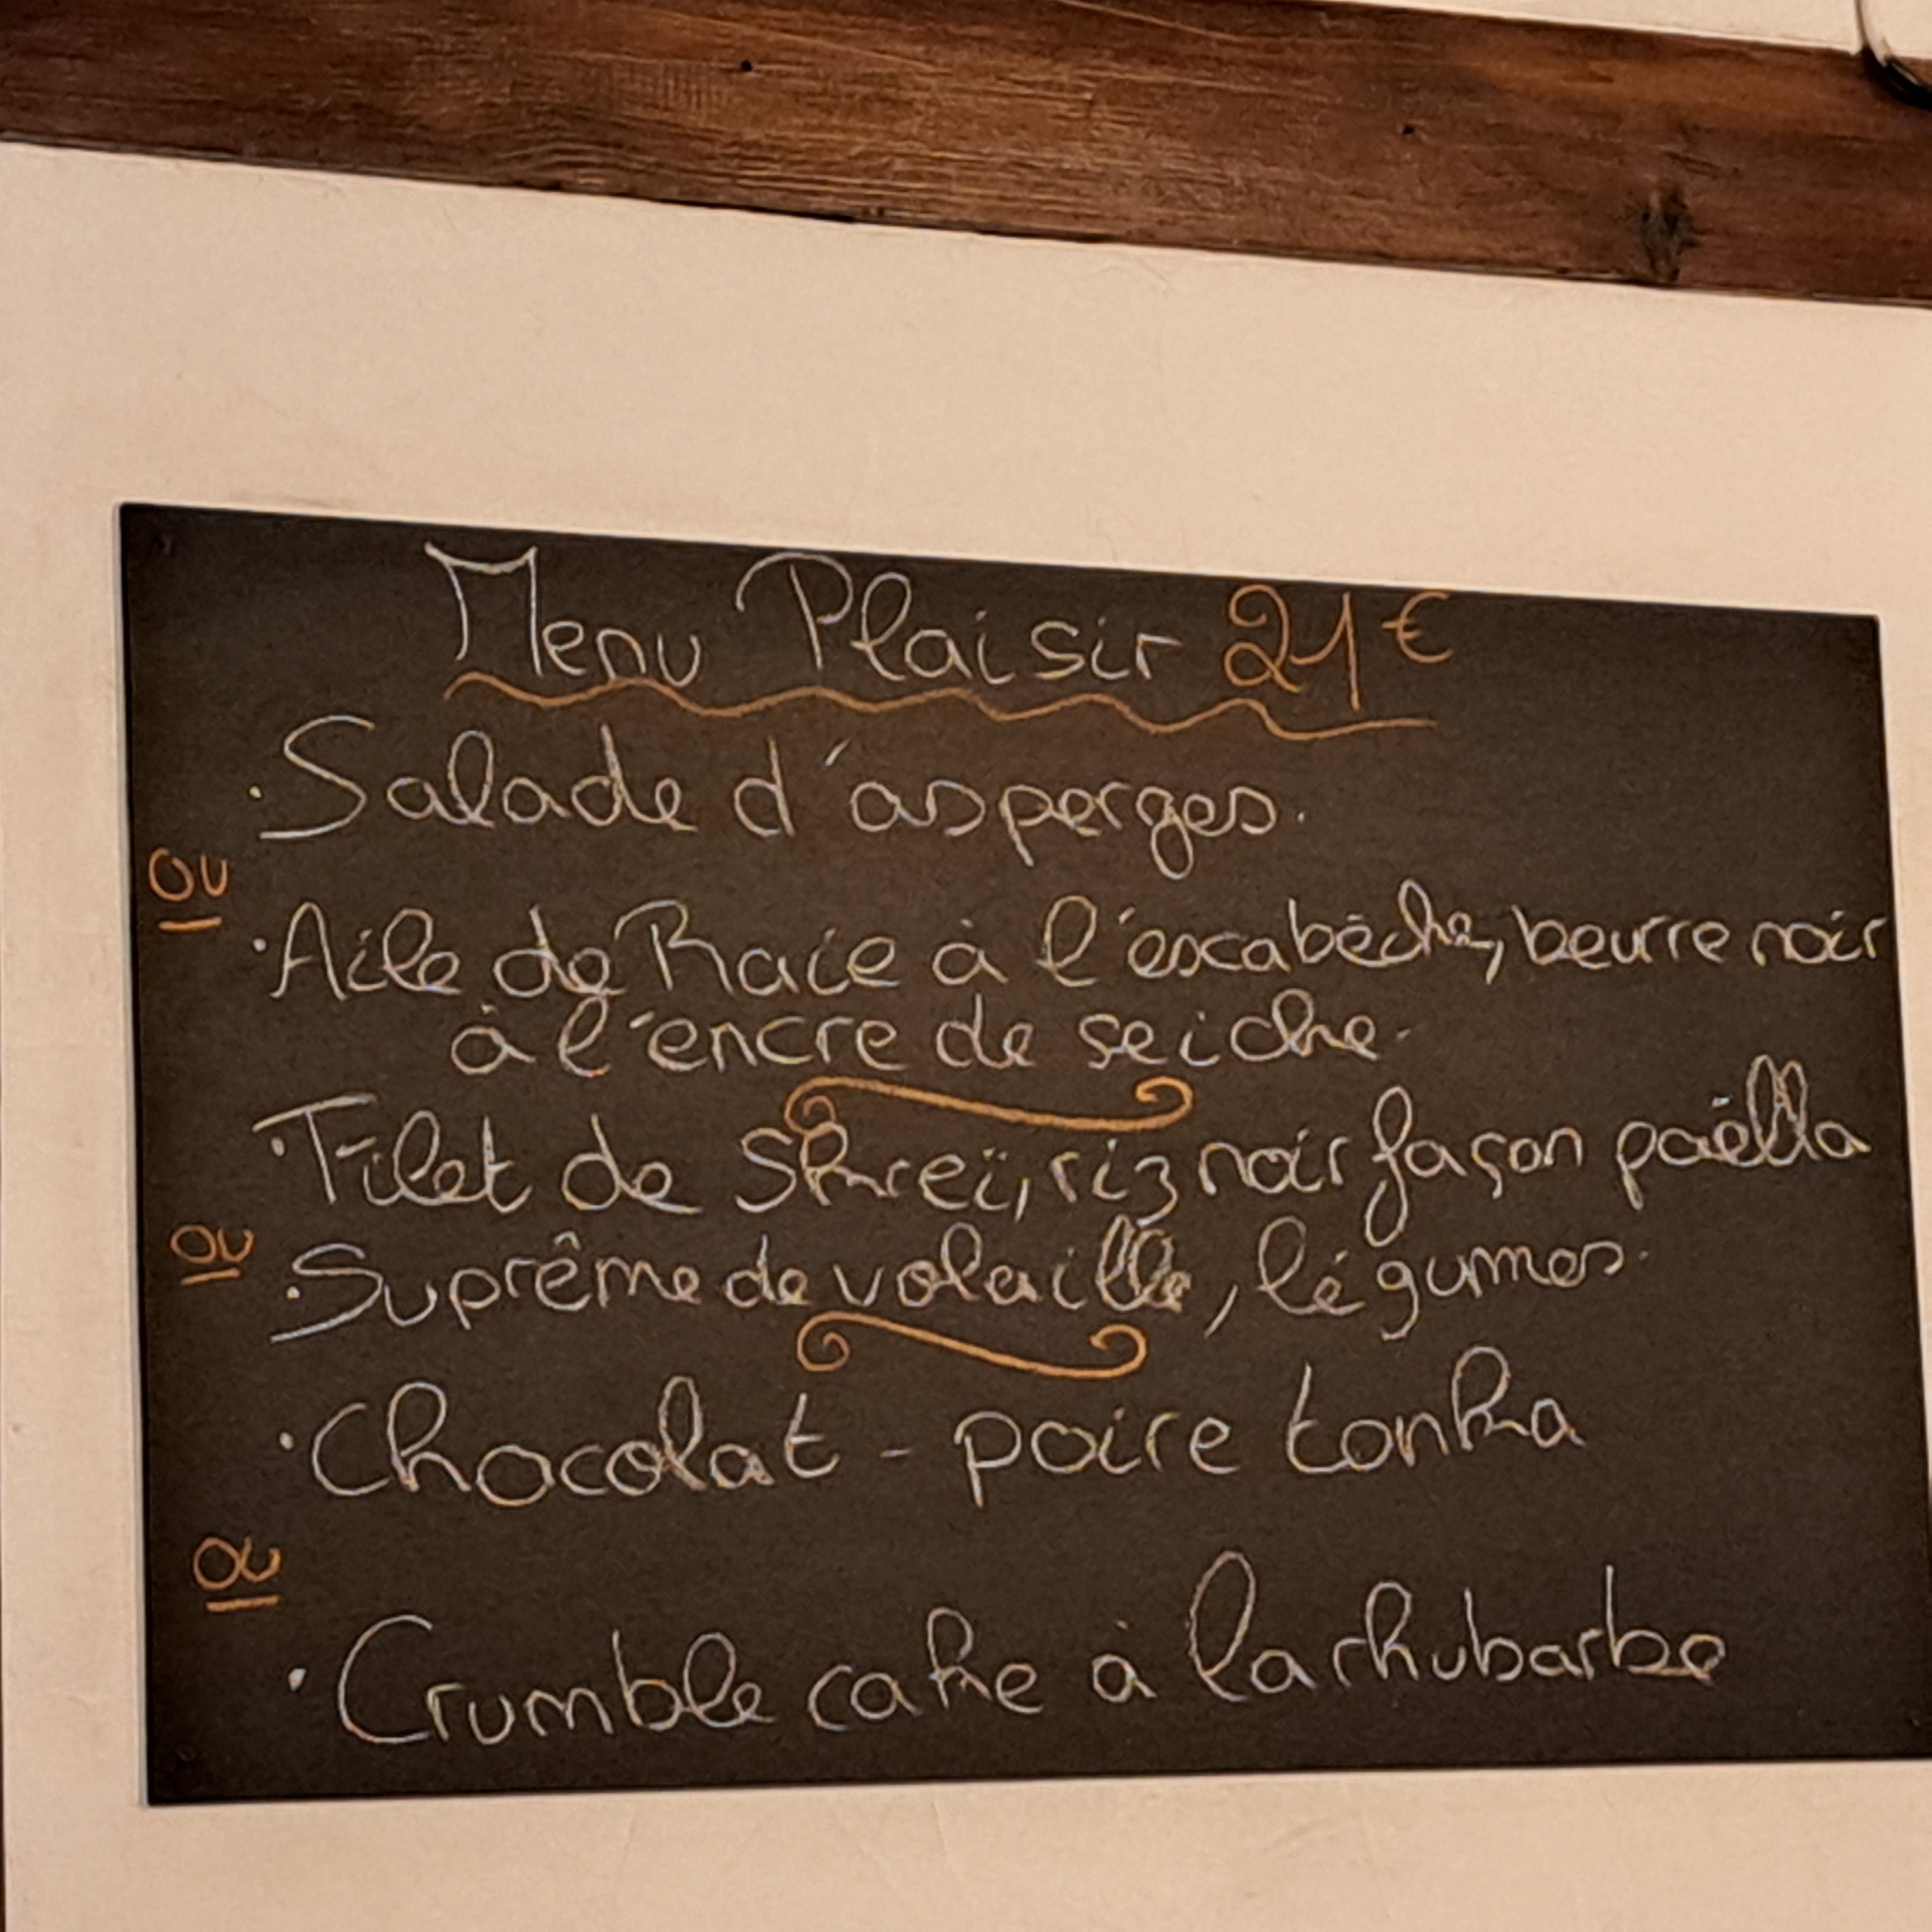 Menu Plaisir 21€
. Salade d'asperges.
ou
. Aile de Raie à l'escabèche, beurre noir
à l'encre de seiche.
. Filet de Skreï, riz noir façon paëlla
ou
. Suprême de volaille, légumes.
. Chocolat - poire tonka
ou
. Crumble cake à la rhubarbe